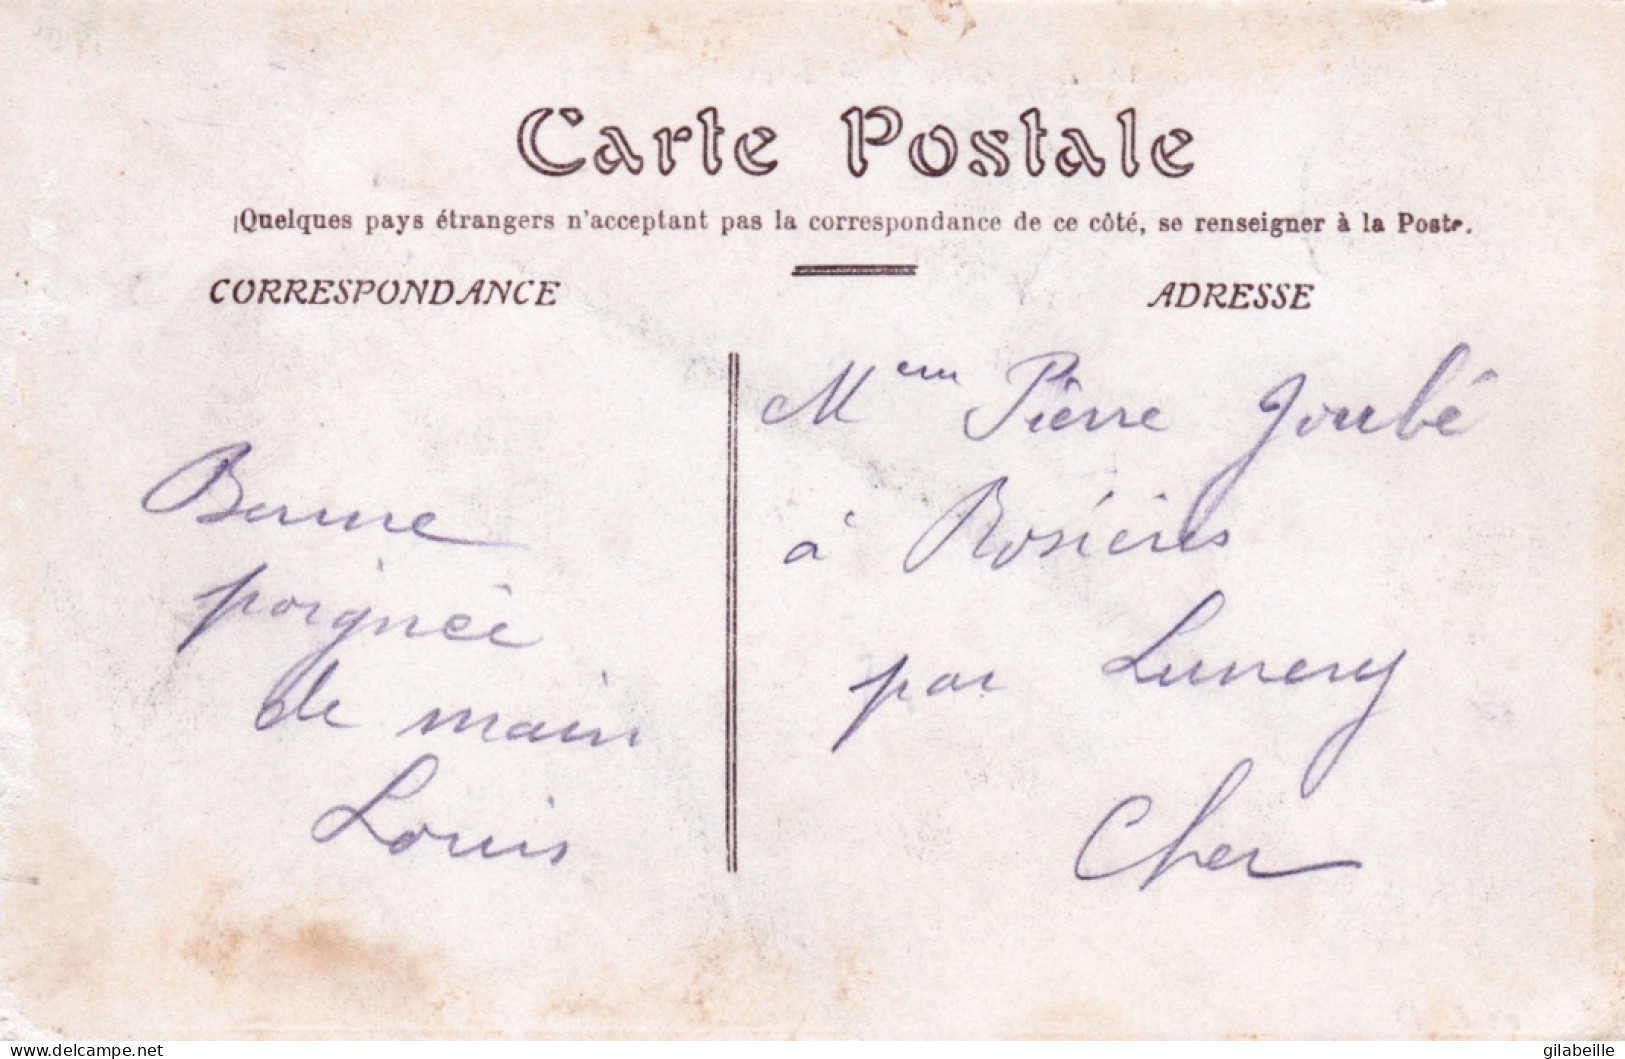 Carte Postale
Quelques pays étrangers n'acceptant pas la correspondance de ce côté, se renseigner à la Poste.
CORRESPONDANCE
ADRESSE
Bonne
poignée
de main
Louis
Mme Pierre Joubé
à Rosières
par Lunery
Cher
delcampe.net
gilabeille